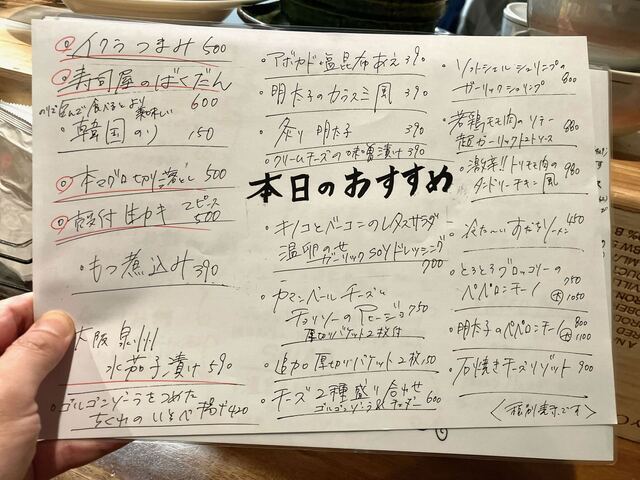 イクラつまみ 500
寿司屋のばくだん
のりで包んで食べるとより美味しい 600
・韓国のり 150
本マグロ切り落とし 500
殻付生カキ 2ピース
500
・もつ煮込み 390
大阪泉州
水茄子漬け 590
・ゴルゴンゾーラをつめた
ちくわのいそべ揚げ 420
・アボカド塩昆布あえ 390
・明太子のカラスミ風 390
・炙り明太子 390
・クリームチーズの味噌漬け 390
本日のおすすめ
・キノコとベーコンのレタスサラダ
温卵のせ
ガーリックsoyドレッシング
700
・カマンベールチーズと
チョリソーのアヒージョ 750
厚切りバケット2枚付
・追加厚切りバケット2枚 150
・チーズ2種盛り合わせ 600
ゴルゴンゾーラ&チェダー
・ソフトシェルシュリンプの
ガーリックシュリンプ 800
・若鶏モモ肉のソテー
超ガーリックトマトソース 980
・激辛!!トリモモ肉の 980
タンドリーチキン風
・冷た〜いすだちソーメン 450
・とろとろブロッコリーの
ペペロンチーノ 750
大 1050
・明太子のペペロンチーノ 800
大 1100
・石焼きチーズリゾット 900
<税別表示です>